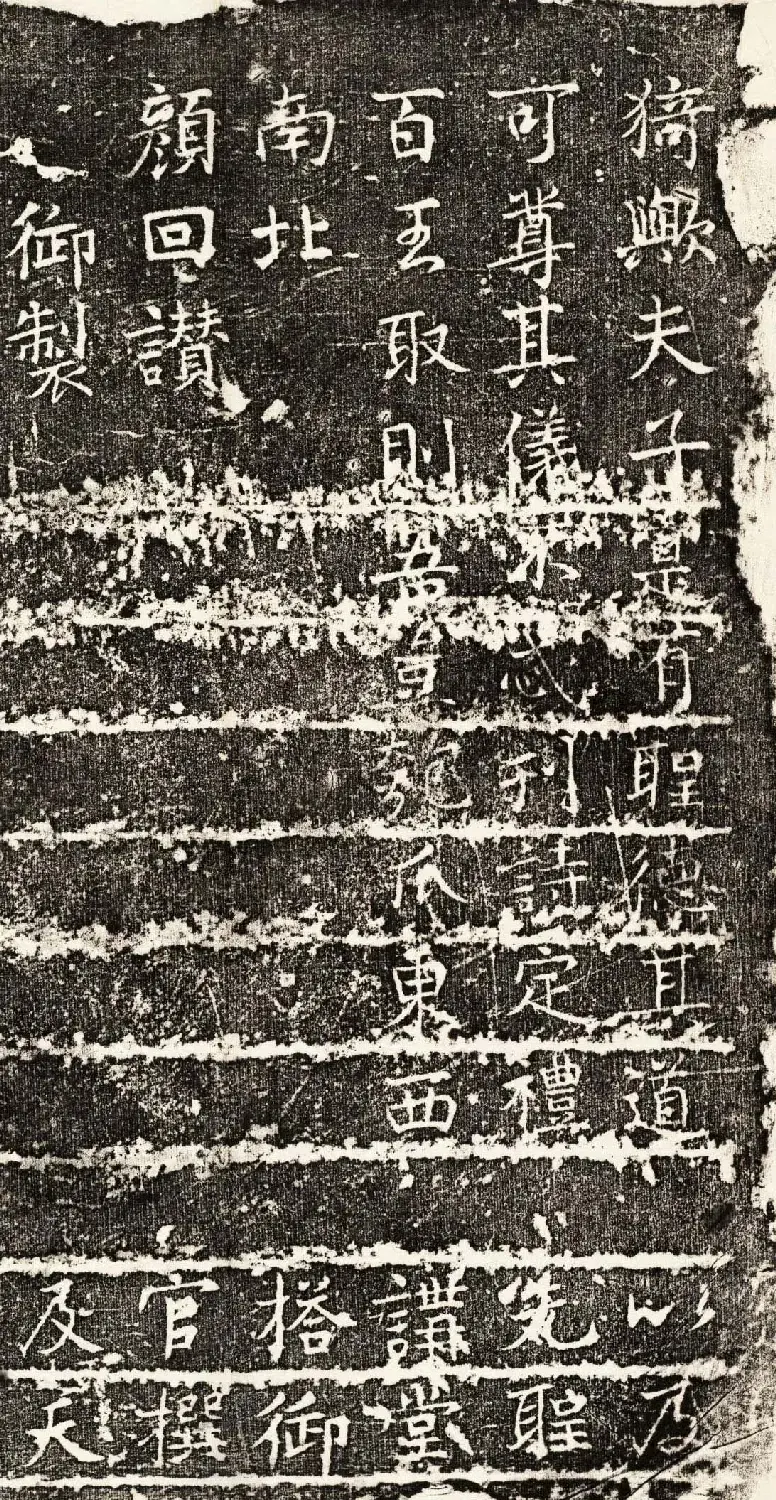 猗歟夫子寔有聖德其道
可尊其儀不忒刊詩定禮
百王取則吾豈匏瓜東西
南北
顏回讚
御製
以
先聖
講堂
搭御
官撰
及天